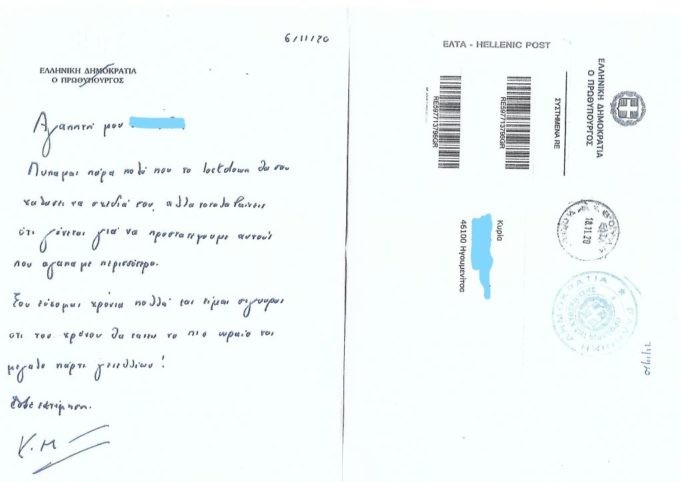 6/11/20
ΕΛΛΗΝΙΚΗ ΔΗΜΟΚΡΑΤΙΑ
Ο ΠΡΩΘΥΠΟΥΡΓΟΣ
Αγαπητή μου
Λυπάμαι πάρα πολύ που το lockdown θα σου
χαλάσει τα σχέδιά σου, αλλά καταλαβαίνεις
ότι γίνεται για να προστατέψουμε αυτούς
που αγαπάμε περισσότερο.
Σου εύχομαι χρόνια πολλά και είμαι σίγουρος
ότι του χρόνου θα κάνεις το πιο ωραίο και
μεγάλο πάρτι γενεθλίων!
εκτίμηση.
Κ.Μ
ΕΛΤΑ - HELLENIC POST
RE597713796GR
RE597713796GR
ΣΥΣΤΗΜΕΝΑ RE
ΕΛΛΗΝΙΚΗ ΔΗΜΟΚΡΑΤΙΑ
Ο ΠΡΩΘΥΠΟΥΡΓΟΣ
Κυρία
46100 Ηγουμενίτσα
10.11.20